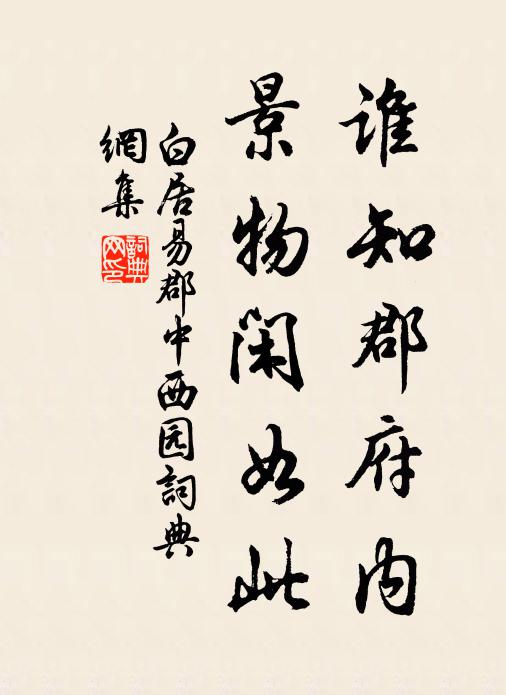 谁知郡府内
景物闲如此
白居易郡中西园詞典
網集
詞典
网印